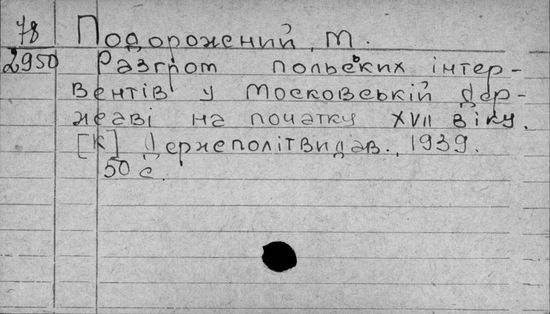 78 Подорожений, М.
2950 Разгром польських інтер-
вентів у Московській Дер-
жаві на початку XVII віку.
[К] Держполітвидав., 1939.
50 с.